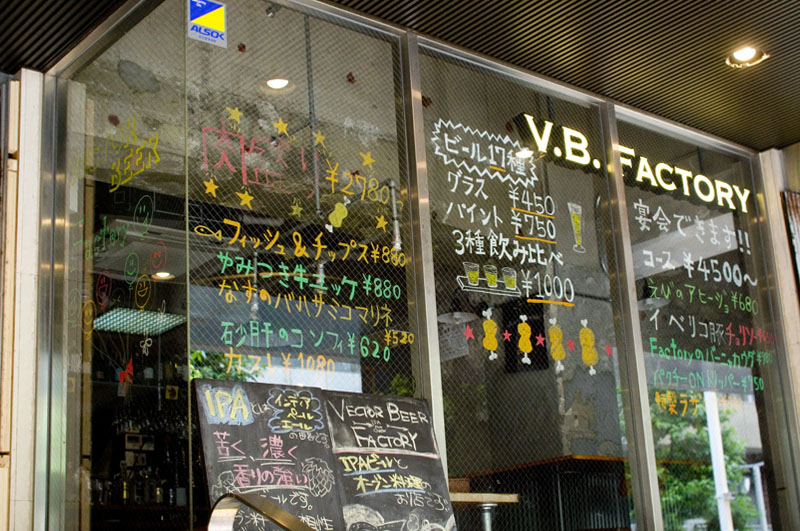 ALSOK
BEER
Factory
¥2780
フィッシュ&チップス ¥880
やみつき牛ユッケ ¥880
なすのバルサミコマリネ
¥520
石少月干のコンフィ ¥620
¥1080
ビール17種
グラス ¥450
パイント ¥750
3種飲み比べ
¥1000
V.B. FACTORY
宴会できます!!
コース ¥4500〜
えびのアヒージョ ¥680
イベリコ豚チョリソー
Factoryのバーニャカウダ
IPAとは
インディア
ペール
エール
苦く、濃く
香りの強い
ビールです。
VECTOR BEER
FACTORY
IPAビールと
オーブン料理の
お店です。